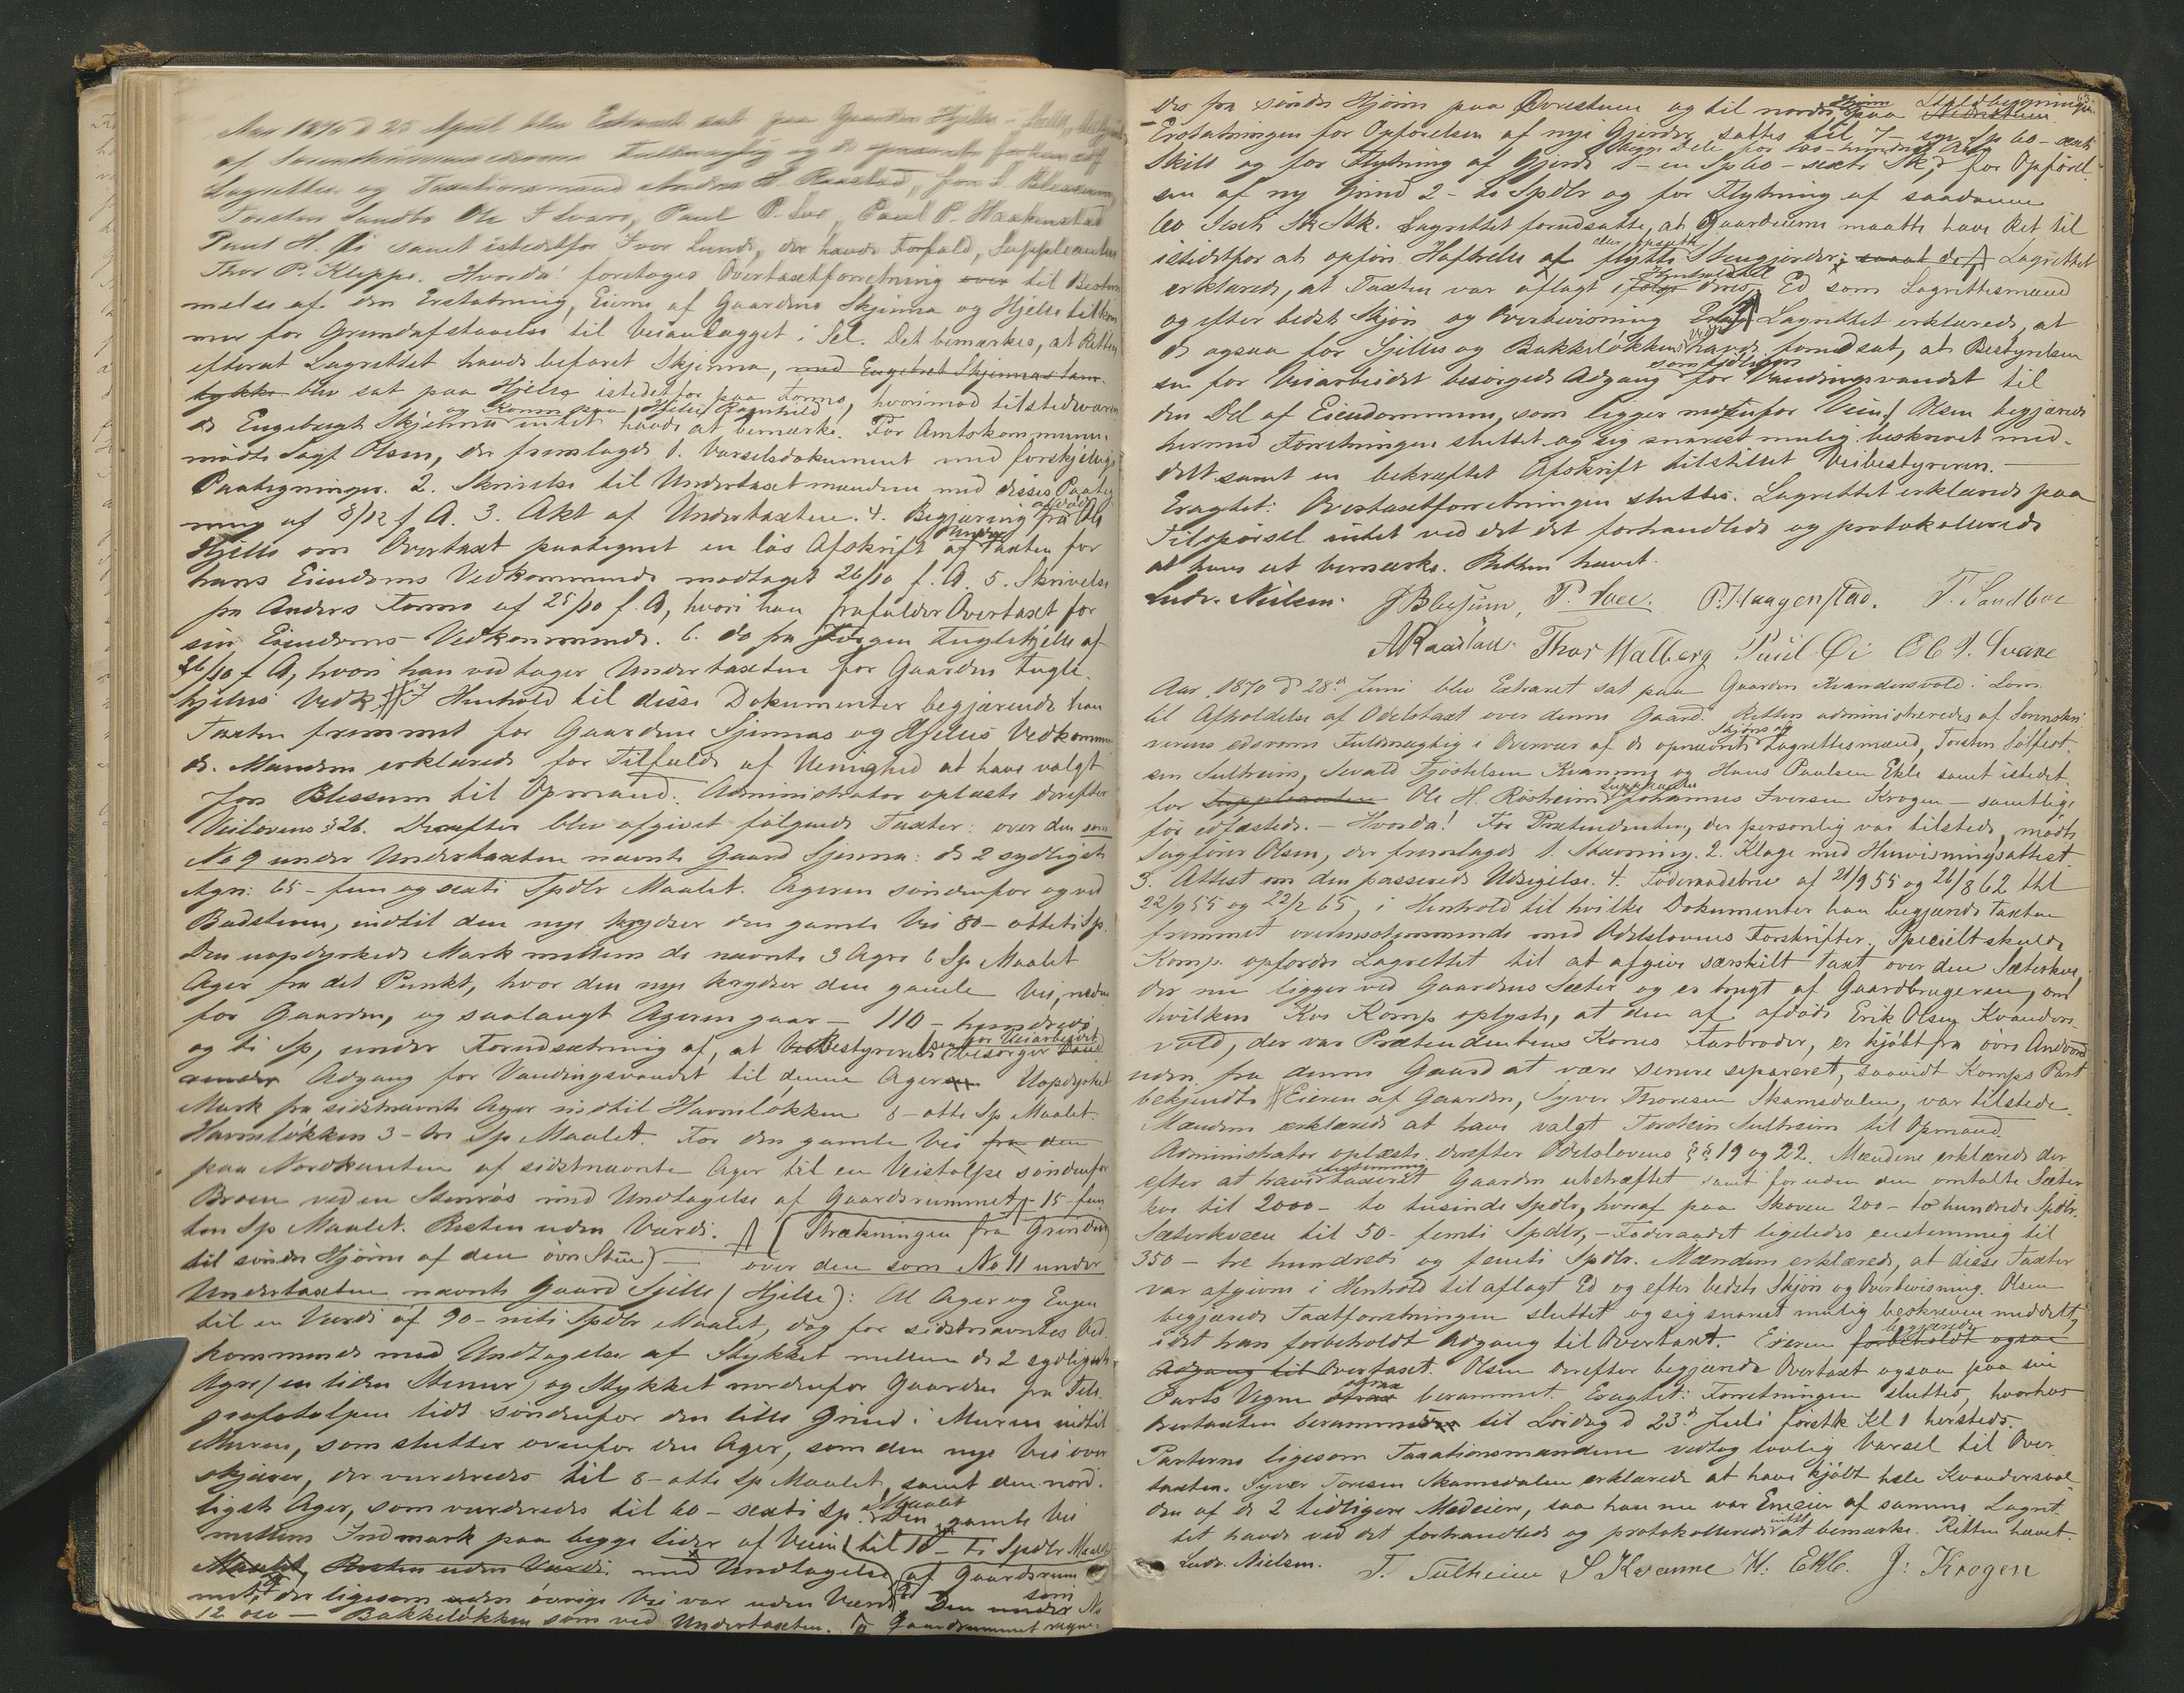 Aar 1870 d 25 April blev Extraret sat paa Gaarden Hjelle
af Sorenskriverens edsvorne Fuldmægtig og de opnævnte
Lagrettes og Taxationsmænd Anders H. Raastad, Jon I. Blessum,
Torsten Sandbo Ole I Svare, Paul P. Sve, Paul P. Haakenstad
Paul H. Øi samt istedetfor Iver Lunde, der havde Forfald, Suppleanten
Thor P. Kleppe. Hvorda! foretages Overtaxtforretning over til Bestem
melse af den Erstatning, Eierne af Gaardene Skjenna og Hjelle tilkom
mer for Grundafstaaelse til Veianlægget i Sel. Det bemærkes, at Retten
efterat Lagrettet havde befaret Skjenna, med Engebret Skjennas Sam
tykke blev sat paa Hjelle istedetfor paa Formo, hvorimod tilstedeværen
de Engebregt Skjenna og Konen paa Hjelle Ragnhild intet havde at bemærke. For Amtskommunen
mødte Sagf Olsen, der fremlagde 1. Varselsdokument med forskjellige
Paategninger. 2. Skrivelse til Undertaxtmændene med disses Paateg
ning af 8/12 f A. 3. Akt af Undertaxten. 4. Begjæring fra Ole
Hjelle om Overtaxt paategnet en løs Afskrift af Undertaxten for
hans Eiendoms Vedkommende modtaget 26/10 f. A. 5. Skrivelse
fra Anders Formo af 25/10 f. A, hvori han frafalder Overtaxt for
sin Eiendoms Vedkommende. 6. do fra Jørgen Fuglehjelle af
26/10 f A, hvori han vedtager Undertaxten for Gaarden Fugle
hjelles Vedk. I Henhold til disse Dokumenter begjærende han
Taxten fremmet for Gaardene Sjennas og Hjelles Vedkommen
de. Mændene erklærede for Tilfælde af Uenighed at have valgt
Jon Blessum til Opmand. Administrator oplæste derefter
Veilovens § 26. Derefter blev afgivet følgende Taxter: over den som
No 9 under Undertaxten nævnte Gaard Sjenna: de 2 sydligste
Agre: 65 - fem og sexti Spdlr Maalet. Ageren søndenfor og ved
Badstuen, indtil den nye krydser den gamle Vei 80 - otteti Sp.
Den uopdyrkede Mark mellem de nævnte 3 Agre 6 Sp Maalet
Ager fra det Punkt, hvor den nye krydser den gamle Vei, neden
for Gaarden, og saalangt Ageren gaar - 110 - hundrede
og ti Sp, under Forudsætning af, at Bestyrelsen for Veiarbeidet besørger
Adgang for Vandingsvandet til denne Ager. Uopdyrket
Mark fra sidstnævnte Ager indtil Havneløkken 8 - otte Sp Maalet.
Havneløkken 3 - tre Sp Maalet. For den gamle Vei fra den
paa Nordkanten af sidstnævnte Ager til en Veistolpe søndenfor
Broen ved en Stenrøs med Undtagelse af Gaardsrummet - 15 - fem
ten Sp Maalet. Resten uden Værdi. (Strækningen fra Grinden
til søndre Hjørne af den øvre Stue) - over den som No 11 under
Undertaxten nævnte Gaard Sjelle (Hjelle): Al Ager og Engen
til en Værdi af 90 - niti Spdlr Maalet, dog for sidstnævntes Ved
kommende med Undtagelse af Stykket mellem de 2 sydligste
Agre (en liden Stenur) og Stykket nordenfor Gaarden fra Tele
grafstolpen lidt søndenfor den lille Grind i Muren indtil
Muren, som slutter ovenfor den Ager, som den nye Vei over
skjærer, der vurderedes til 8 - otte Sp Maalet, samt den nord
ligste Ager, som vurderedes til 60 - sexti Sp. Maalet Den gamle Vei
mellem Indmark paa begge sider af Veien til 10 - ti Spdlr Maalet
Maalet, Resten uden Værdi, med Undtagelse af Gaardsrum
met, der ligesom den øvrige Vei var uden Værdi. Den under som No
12 - Bakkeløkken som ved Undertaxten. Gaardrummet regne
des fra søndre Hjørne paa Øvrestuen og til nordre Hjørne paa Staldbygningen
Erstatningen for Opførelsen af nye Gjerder sattes til 7 - syv Sp 60 - sexti
Skill og for Flytning af Gjerde 1 - en Sp 60 - sexti Sk, for Opførel
sen af ny Grind 2 - to Spdlr og for Flytning af saadanne
60 Sexti Sk Stk. Lagrettet forudsatte, at Gaardeierne maatte have Ret til
istedetfor at opføre Haftelle af flytte eller opsætte Stengjerder, samt de Lagrettet
erklærede, at Taxten var aflagt i Henhold til deres Ed som Lagrettesmænd
og efter bedste Skjøn og Overbevisning Lagrettet erklærede, at
de ogsaa for Sjelles og Bakkeløkkens Vedk havde forudsat, at Bestyrelsen
for Veiarbeidet besørgede Adgang som tidligere for Vandingsvandet til
den Del af Eiendommen, som ligger nedenfor Veien. Olsen begjærede
hermed Forretningen sluttet og sig snarest mulig beskrevet med-
delt samt en bekræftet Afskrift tilstillet Veibestyreren.
Eragtet: Overtaxtforretningen sluttes. Lagrettet erklærede paa
Tilspørsel intet ved det det forhandlede og protokollerede
at have at bemærke. Retten hævet.
Ludv. Nielsen. J Blessum, P. Svee. P. Haagenstad. T. Sandboe
A Raastad. Thor Walberg Paul Øi Ole I. Svare
Aar 1870 d 28de Juni blev Extraret sat paa Gaarden Kvandersvold i Lom
til Afholdelse af Odelstaxt over denne Gaard. Retten administreredes af Sorenskri
verens edsvorne Fuldmægtig i Overvær af de opnævnte Skjøns og Lagrettesmænd, Torsten Sølfest
sen Sulheim, Sevald Fjøstelsen Kvanne og Hans Paulsen Ekle samt istedet
for Ole H. Røsheim Suppleanten Johannes Iversen Krogen - samtlige
før edfæstede. - Hvorda! For Prætendenten, der personlig var tilstede, mødte
Sagfører Olsen, der fremlagde 1. Stævning. 2. Klage med Henvisningsattest
3. Attest om den passerede Udsigelse. 4. Føderaadsbrev af 21/9 55 og 26/8 62 thl
22/9 55 og 22/2 65, i Henhold til hvilke Dokumenter han begjærede Taxten
fremmet overensstemmende med Odelslovens Forskrifter. Specielt skulde
Komp. opfordre Lagrettet til at afgive særskilt Taxt over den Sæterkve,
der nu ligger ved Gaardens Sæter og er brugt af Gaardbrugeren, om
hvilken Kve Komp oplyste, at den af afdøde Erik Olsen Kvanders
vold, der var Prætendentens Kones Farbroder, er kjøbt fra øvre Andvord
uden fra denne Gaard at være senere separeret, saavidt Komps Part
bekjendte Eieren af Gaarden, Syver Thoresen Skamsdalen, var tilstede.
Mændene erklærede at have valgt Torstein Sulheim til Opmand.
Administrator oplæste derefter Odelslovens §§ 19 og 22. Mændene erklærede der
efter at have enstemmig taxeret Gaarden ubehæftet samt foruden den omtalte Sæter
kve til 2000 - to tusinde Spdlr, hvoraf paa Skoven 200 - to hundrede Spdlr.
Sæterkveen til 50 - femti Spdlr, - Føderaadet ligeledes enstemmig til
350 - tre hundrede og femti Spdlr. Mændene erklærede, at disse Taxter
var afgivne i Henhold til aflagt Ed og efter bedste Skjøn og Overbevisning. Olsen
begjærede Taxtforretningen sluttet og sig snarest mulig beskreven meddelt,
idet han forbeholdt Adgang til Overtaxt. Eieren begjærede forbeholdt ogsaa
Adgang til Overtaxt. Olsen derefter begjærede Overtaxt ogsaa paa sin
Parts Vegne strax berammet. Eragtet: Forretningen sluttes, hvorhos
Overtaxten berammes til Lørdag d 23de Juli førstk Kl 1 hersteds.
Parterne ligesom Taxationsmændene vedtog lovlig Varsel til Over
taxten. Syver Toresen Skamsdalen erklærede at have kjøbt hele Kvandersvol
den af de 2 tidligere Medeiere, saa han nu var Eneeier af samme, Lagret
tet havde ved det forhandlede og protokollerede intet at bemærke. Retten hævet.
Ludv. Nielsen. T. Sulheim S Kvanne H. Ekle. J: Krogen